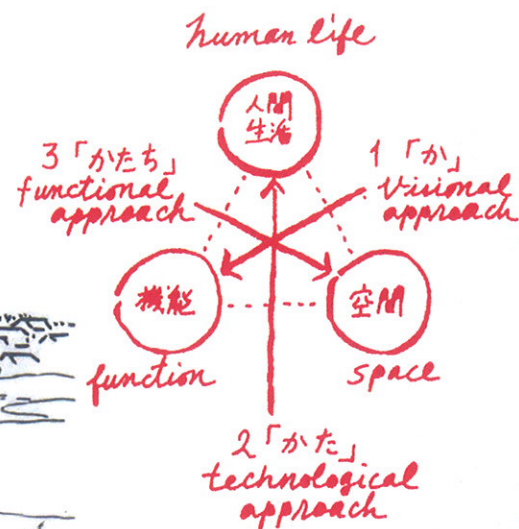 human life
人間
生活
3「かたち」
functional
approach
1「か」
visional
approach
機能
空間
function
space
2「かた」
technological
approach